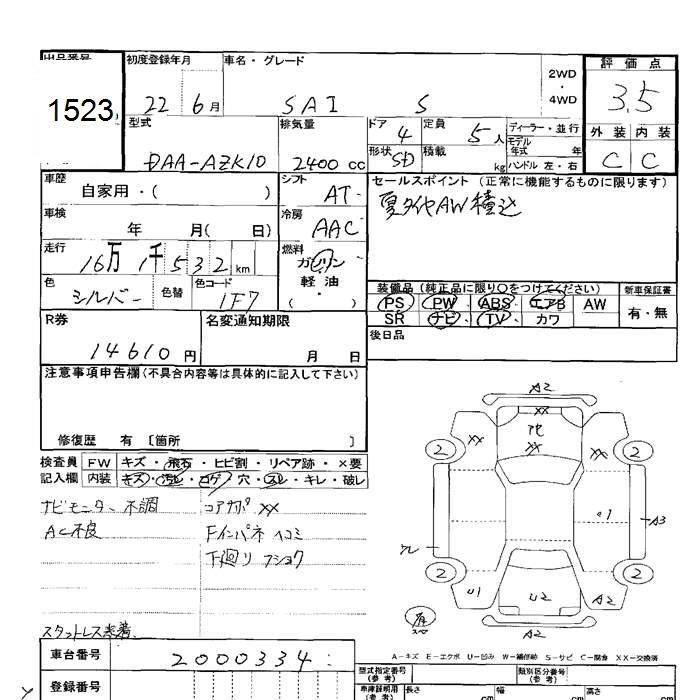 出品番号
1523
初度登録年月
22 6月
車名・グレード
SAI S
2WD
・
4WD
評価点
3.5
外装 内装
C C
型式
DAA-AZK10
排気量
2400cc
ドア
4
定員
5人
ディーラー・並行
モデル
年式 年
形状
SD
積載
kg
ハンドル 左・右
車歴
自家用・( )
シフト
AT
セールスポイント (正常に機能するものに限ります)
夏タイヤAW積込
車検
年 月( 日)
冷房
AAC
走行
16万 1千532km
燃料
ガソリン
軽油
( )
色
シルバー
色替
色コード
1F7
装備品 (純正品に限り○をつけてください)
PS PW ABS エアB AW
SR ナビ TV カワ
新車保証書
有・無
R券
14610円
名変通知期限
月 日
後日品
注意事項申告欄(不具合内容等は具体的に記入して下さい)
修復歴 有 〔箇所 〕
検査員
記入欄
FW キズ・飛石・ヒビ割・リペア跡・×要
内装 キズ・汚レ・コゲ・穴・スレ・キレ・破レ
ナビモニター不調
AC不良
コアサポ XX
Fインパネ ヘコミ
下廻リ フショク
スタットレス装着
A2
XX
XX
XX
XX
2
2
2
2
U1
A3
U1
U2
A2
A2
有
A-キズ E-エクボ U-凹み W-補修跡 S-サビ C-腐食 XX-交換済
車台番号
2000334
登録番号
型式指定番号
(参考)
類別区分番号
(参考)
車庫証明用
(参考)
長さ
cm
幅
cm
高さ
cm